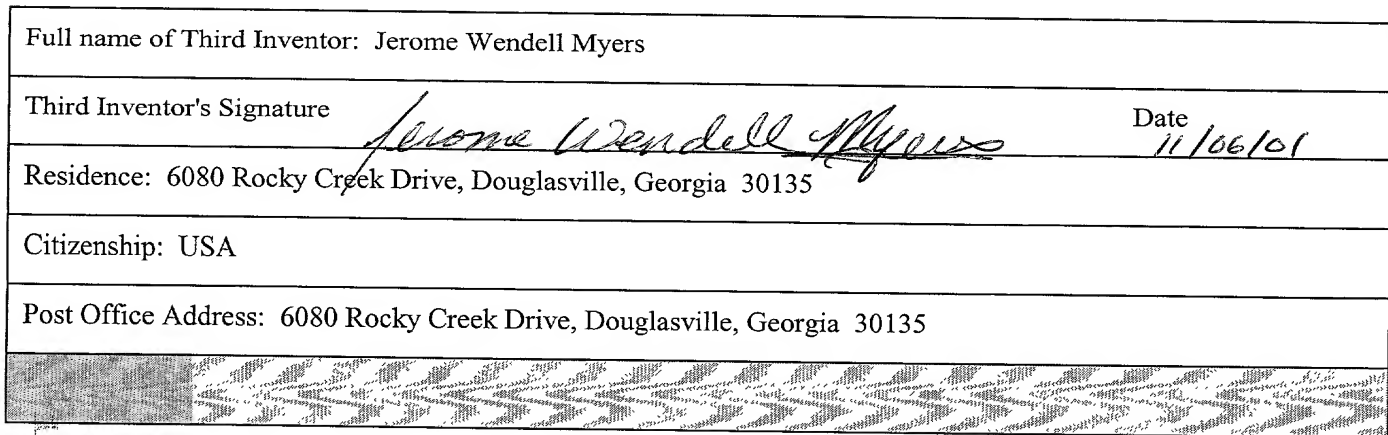 Full name of Third Inventor: Jerome Wendell Myers
Third Inventor's Signature Jerome Wendell Myers Date 11/06/01
Residence: 6080 Rocky Creek Drive, Douglasville, Georgia 30135
Citizenship: USA
Post Office Address: 6080 Rocky Creek Drive, Douglasville, Georgia 30135